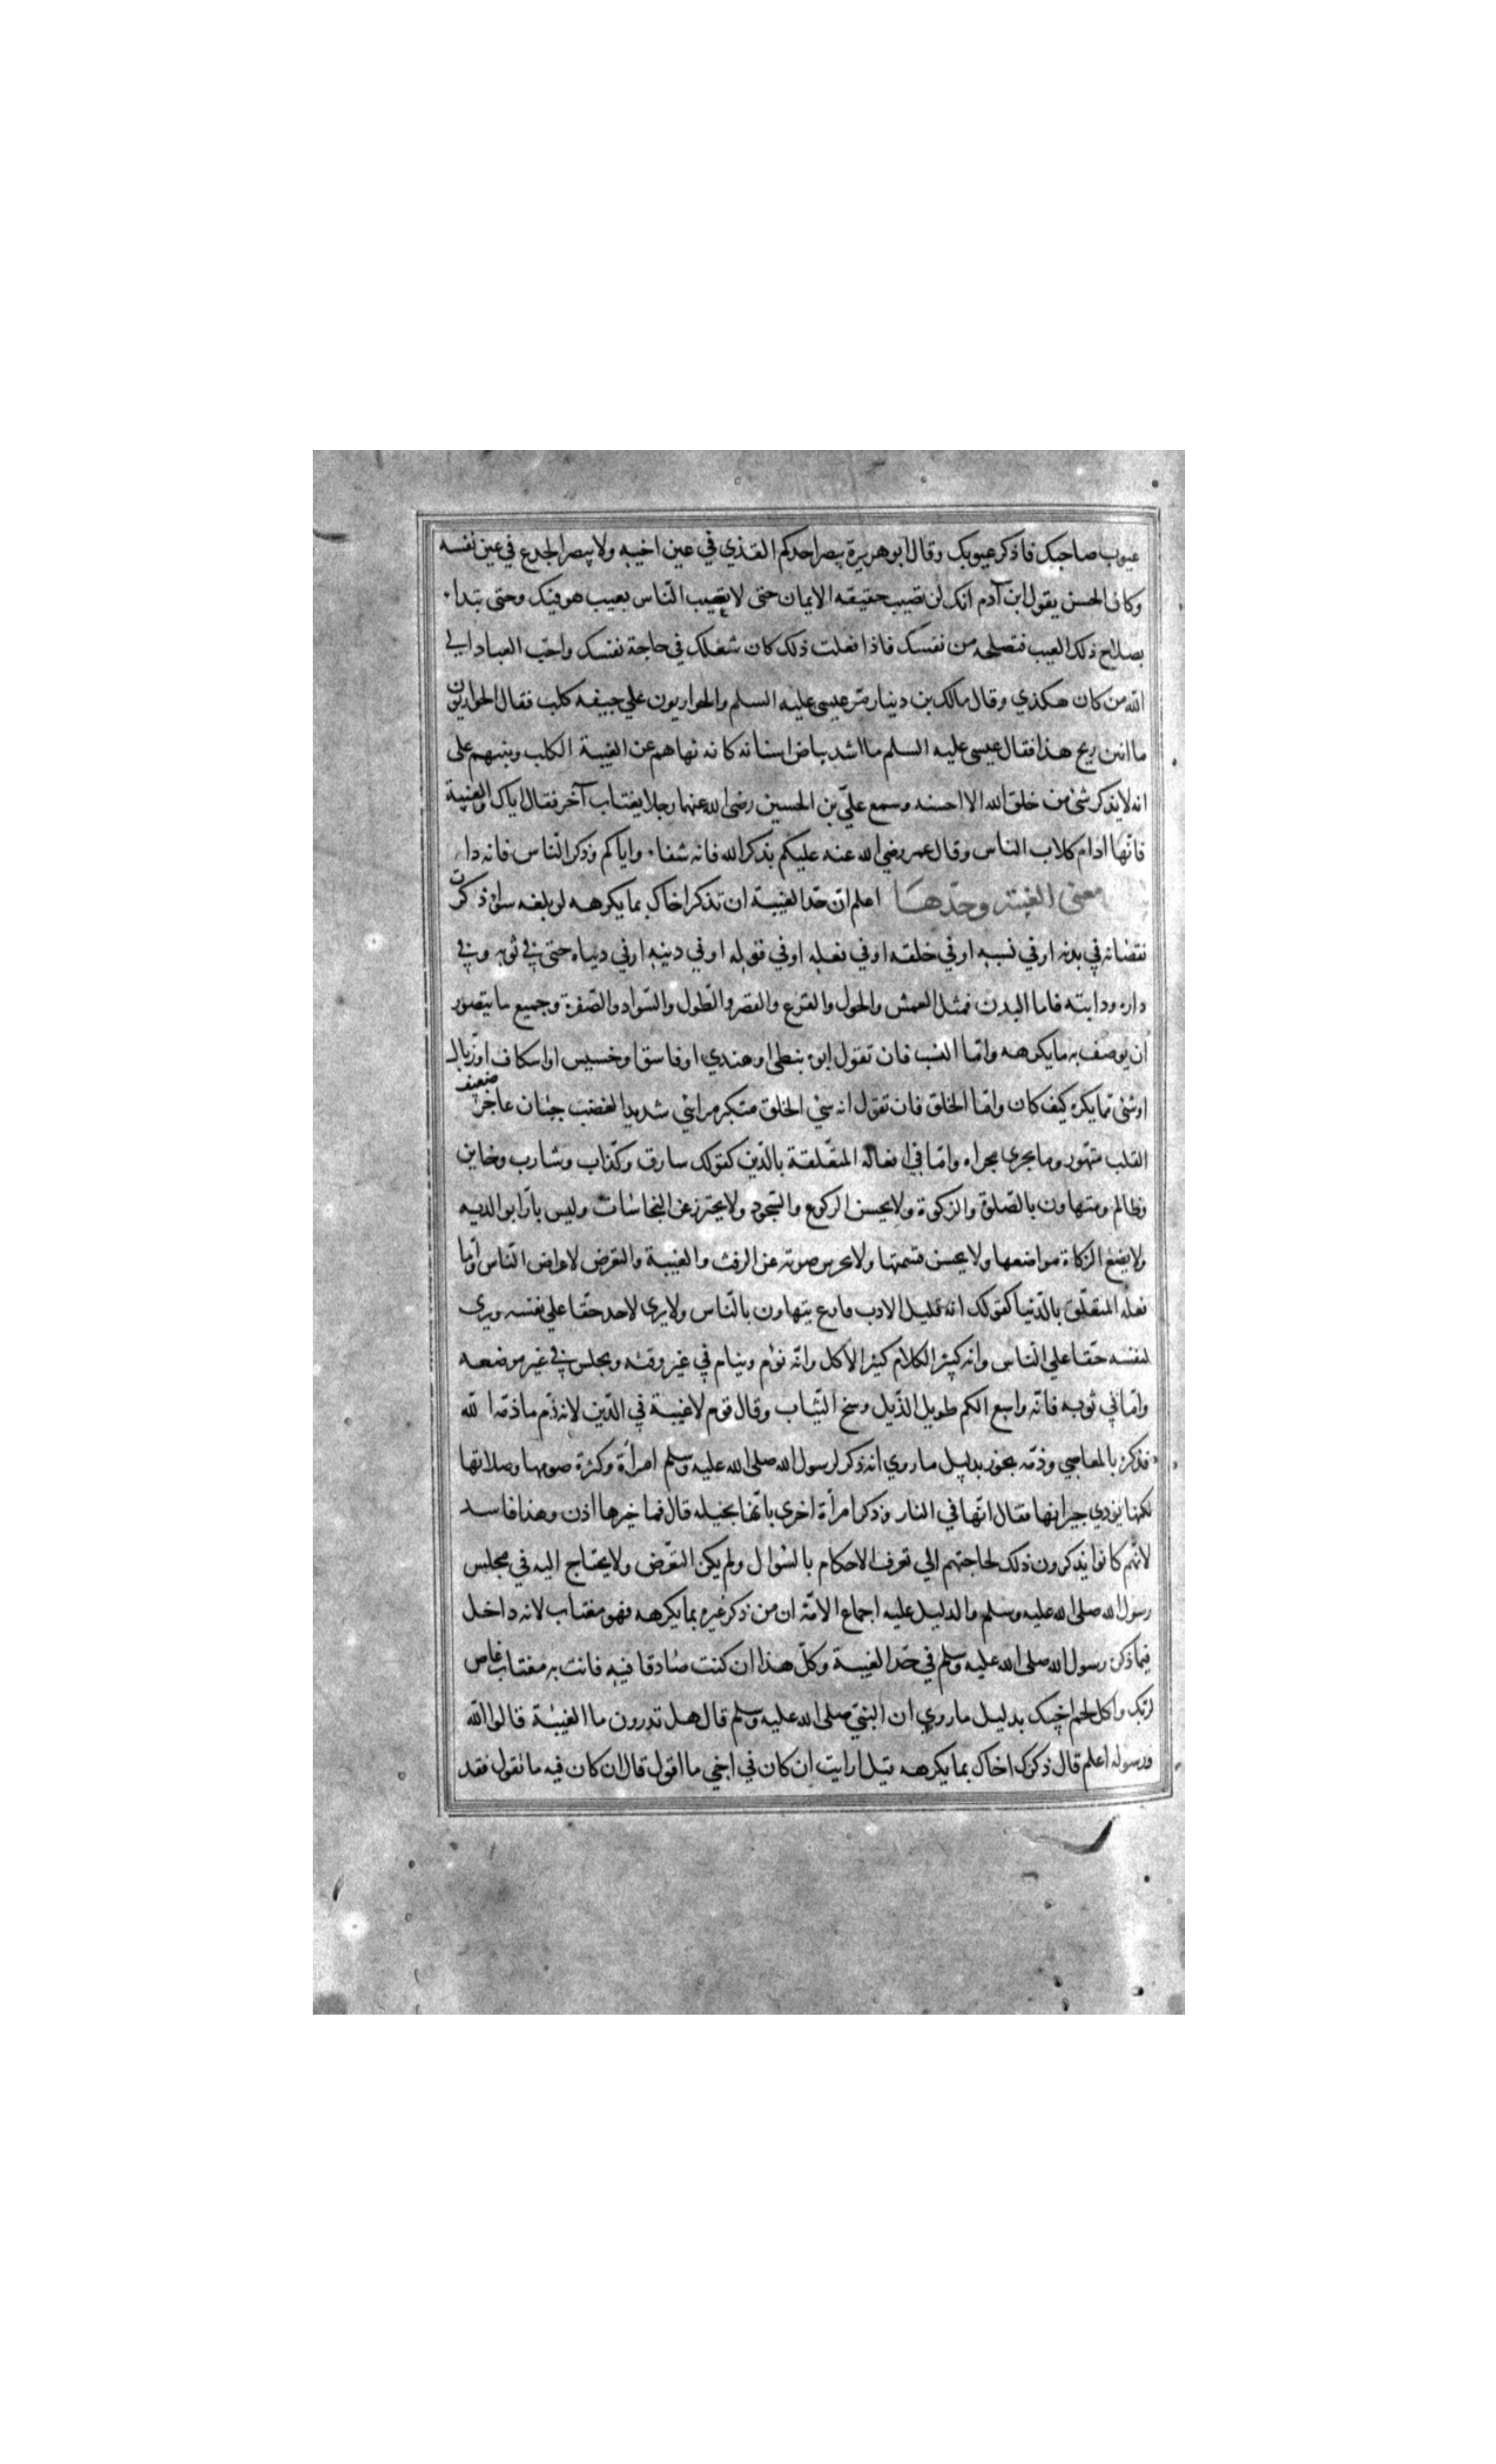 عيوب صاحبك فاذكر عيوبك وقال ابو هريرة يبصر احدكم القذي في عين اخيه ولا يبصر الجذع في عين نفسه
وكان الحسن يقول ابن آدم انك لن تصيب حقيقه الايمان حتى لا تعيب الناس بعيب هو فيك وحتى تبدا
بصلاح ذلك العيب فتصلحه من نفسك فاذا فعلت ذلك كان شغلك في حاجة نفسك واحب العباد الي
الله من كان هكذي وقال مالك بن دينار مر عيسى عليه السلم والحواريون علي جيفه كلب فقال الحواريون
ما انتن ريح هذا فقال عيسى عليه السلم ما اشد بياض اسنانه كانه نهاهم عن الغيبة الكلب وينبههم على
انه لا يذكر شئ من خلق الله الا احسنه وسمع علي بن الحسين رضى الله عنهما رجلا يغتاب آخر فقال اياك والغيبة
فانها ادام كلاب الناس وقال عمر رضي الله عنه عليكم بذكر الله فانه شفاء واياكم وذكر الناس فانه داء
معنى الغيبة وحدها اعلم ان حد الغيبة ان تذكر اخاك بما يكرهه لو بلغه سواء ذكرت
نقصانه في بدنه او في نسبه او في خلقه او في فعله او في قوله او في دينه او في دنياه حتى في ثوبه وفي
داره ودابته فاما البدن فمثل العمش والحول والقرع والقصر والطول والسواد والصفرة وجميع ما يتصور
ان يوصف به ما يكرهه واما النسب فان تقول ابوه نبطى او هندي او فاسق او خسيس او اسكاف او زبال
او شئ مما يكره كيف كان واما الخلق فان تقول انه سئ الخلق متكبر مرائي شديد الغضب جبان عاجز ضعيف
القلب متهور وما يجرى مجراه واما في افعاله المتعلقة بالدين كقولك سارق وكذاب وشارب وخاين
وظالم ومتهاون بالصلوة والزكوة ولا يحسن الركوع والسجود ولا يحترز عن النجاسات وليس بارا بوالديه
ولا يضع الزكاة مواضعها ولا يحسن قسمتها ولا يحرس صوته عن الرفث والغيبة والتعرض لاعراض الناس واما
فعله المتعلق بالدنيا كقولك انه قليل الادب فارع يتهاون بالناس ولا يرى لاحد حقا علي نفسه ويرى
لنفسه حقا علي الناس وانه كثير الكلام كثير الاكل وانه نؤم وينام في غير وقته ويجلس في غير موضعه
واما في ثوبه فانه واسع الكم طويل الذيل وسخ الثياب وقال قوم لا غيبة في الدين لانه ذم ما ذمه الله
فذكره بالمعاصي وذمه يجوز بدليل ما روي انه ذكر لرسول الله صلى الله عليه وسلم امرأة وكثرة صومها وصلاتها
لكنها يؤدي جيرانها فقال انها في النار وذكر امرأة اخرى بانها بخيله قال فما خيرها اذن وهذا فاسد
لانهم كانوا يذكرون ذلك لحاجتهم الي تعرف الاحكام بالسؤال ولم يكن التعرض ولا يحتاج اليه في مجلس
رسول الله صلى الله عليه وسلم والدليل عليه اجماع الامة ان من ذكر غيره بما يكرهه فهو مغتاب لانه داخل
فيما ذكره رسول الله صلى الله عليه وسلم في حد الغيبة وكل هذا ان كنت صادقا فيه فانت به مغتاب عاص
لربك واكل لحم اخيك بدليل ما روي ان النبي صلى الله عليه وسلم قال هل تدرون ما الغيبة قالوا الله
ورسوله اعلم قال ذكرك اخاك بما يكرهه قيل ارايت ان كان في اخي ما اقول قال ان كان فيه ما تقول فقد